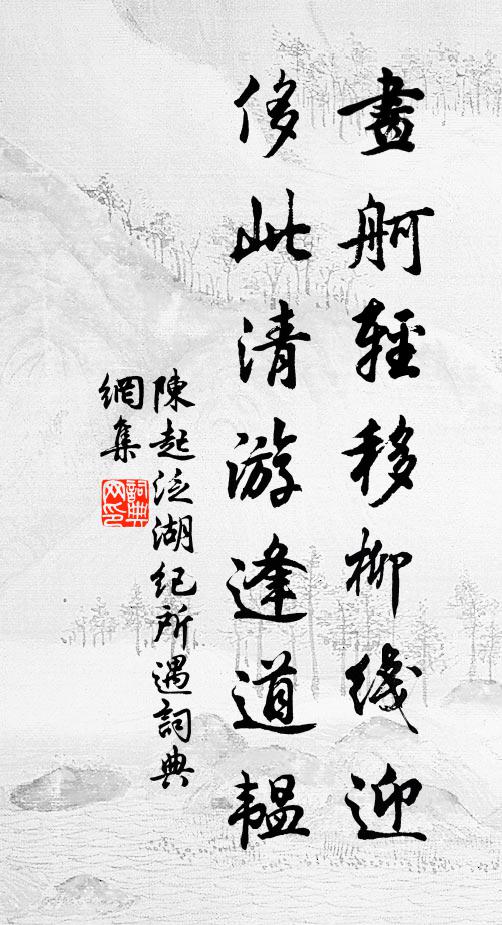 畫舸輕移柳綫迎
侈此清游逢道韞
陳起泛湖紀所遇詞典
網集
詞典
网印